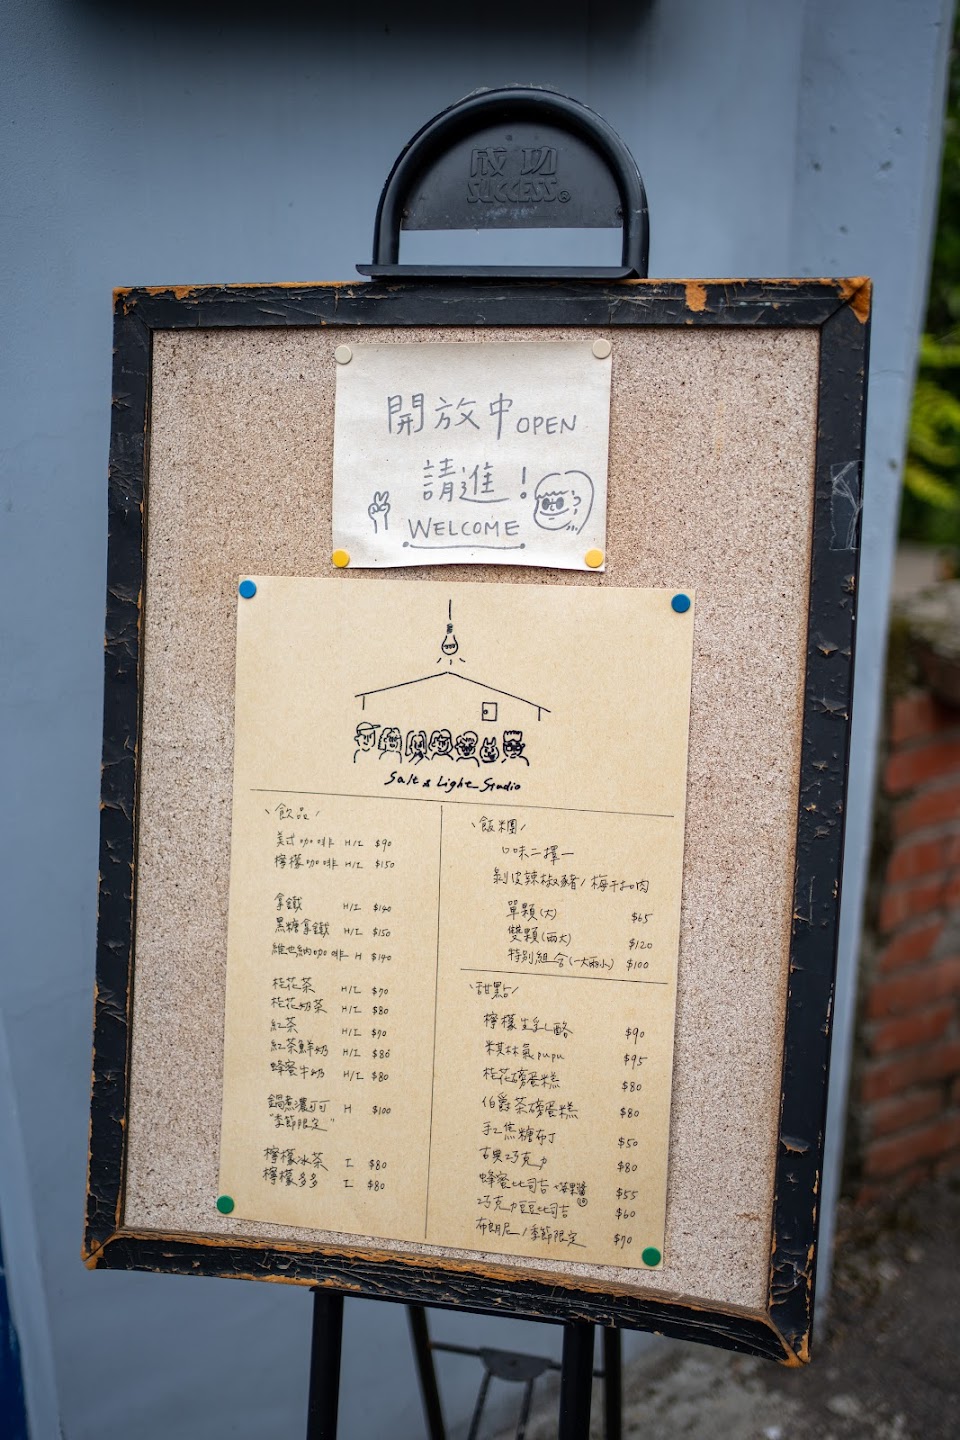 成功
SUCCESS®
開放中 OPEN
請進!
WELCOME
Salt & Light Studio
\飲品/
美式咖啡 H/I $90
檸檬咖啡 H/I $150
拿鐵 H/I $140
黑糖拿鐵 H/I $150
維也納咖啡 H $140
桂花茶 H/I $70
桂花奶茶 H/I $80
紅茶 H/I $70
紅茶鮮奶 H/I $86
蜂蜜牛奶 H/I $80
鍋煮濃可可 H $100
"季節限定"
檸檬冰茶 I $80
檸檬多多 I $80
\飯糰/
口味二擇一
剝皮辣椒豬/梅干扣肉
單顆(大) $65
雙顆(兩大) $120
特別組合(一大兩小) $100
\甜點/
檸檬生乳酪 $90
米其林氣pupu $95
桂花磅蛋糕 $80
伯爵茶磅蛋糕 $80
手工焦糖布丁 $50
古典巧克力 $80
蜂蜜比司吉+果醬 $55
巧克力豆豆比司吉 $60
布朗尼/季節限定 $70